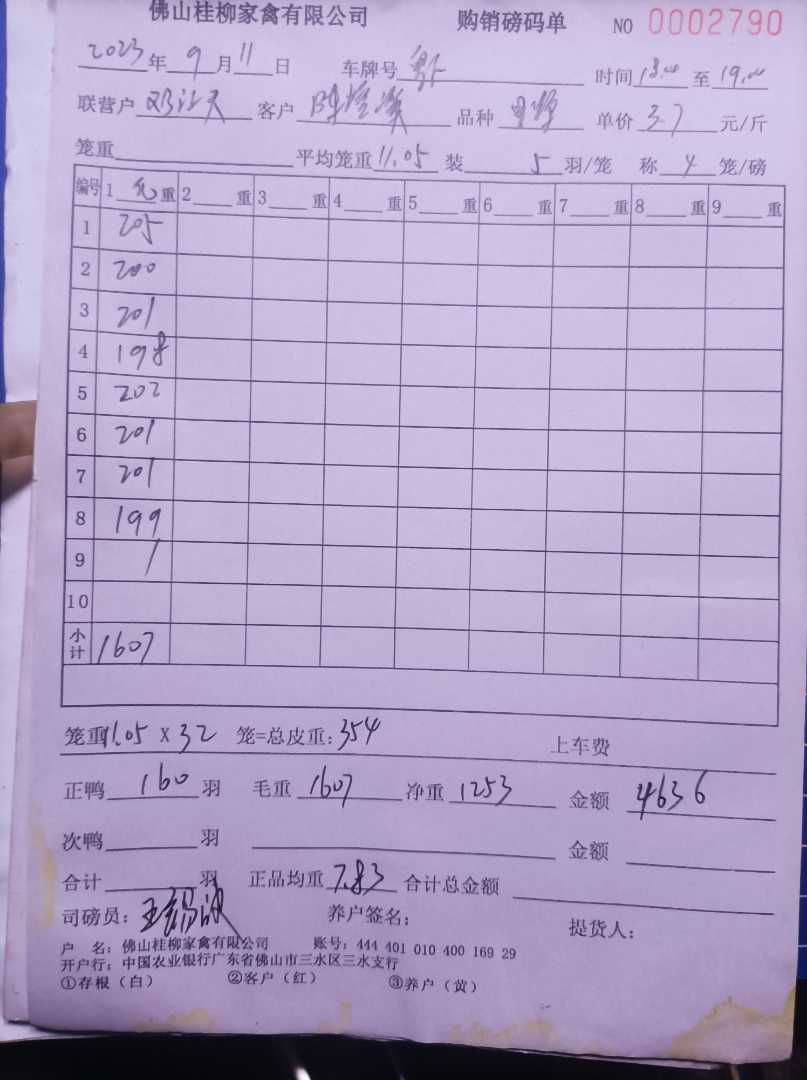 佛山桂柳家禽有限公司 购销磅码单 NO 0002790
2023年 9月 11日 车牌号 时间 18.00 至 19.00
联营户 客户 品种 单价 3.7 元/斤
笼重 平均笼重 11.05 装 5 羽/笼 称 4 笼/磅
编号 1 毛 重 2 重 3 重 4 重 5 重 6 重 7 重 8 重 9 重
1 205
2 200
3 201
4 198
5 202
6 201
7 201
8 199
9 /
10
小计 1607
笼重11.05 X 32 笼=总皮重:354 上车费
正鸭 160 羽 毛重 1607 净重 1253 金额 4636
次鸭 羽 金额
合计 羽 正品均重 7.83 合计总金额
司磅员: 养户签名: 提货人:
户 名: 佛山桂柳家禽有限公司 账号: 444 401 010 400 169 29
开户行: 中国农业银行广东省佛山市三水区三水支行
①存根(白) ②客户(红) ③养户(黄)